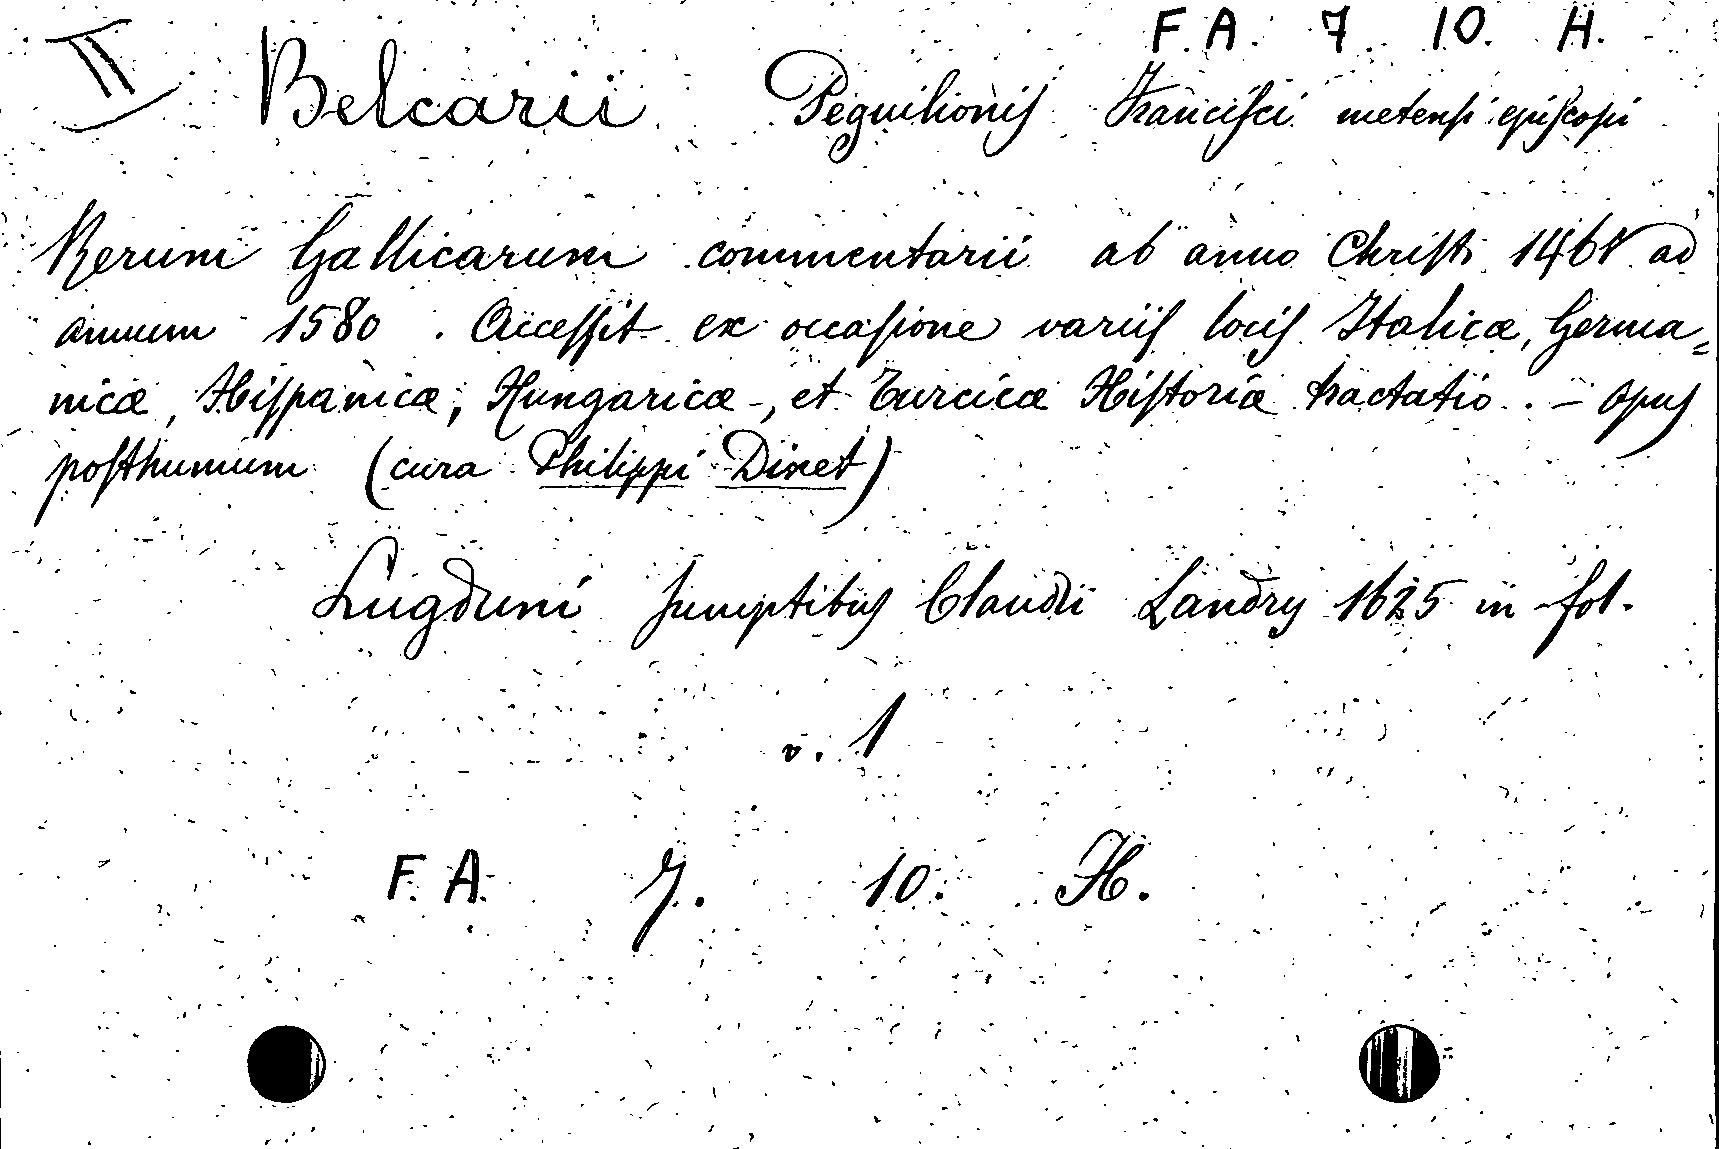 F. A. 7. 10. H.
II Belcarii Peguilionis Francisci metensi episcopi
Rerum Gallicarum commentarii ab anno Christi 1461 ad
annum 1580. Accessit ex occasione variis locis Italicæ, Germa=
nicæ, Hispanicæ, Hungaricæ, et Turcicæ Historiæ tractatio. – Opus
posthumum (cura Philippi Dinet)
Lugduni sumptibus Claudii Landry 1625 in fol.
v. 1
F. A. 7. 10. H.